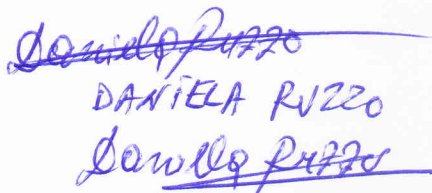 Daniela Ruzzo
DANIELA RUZZO
Daniela Ruzzo